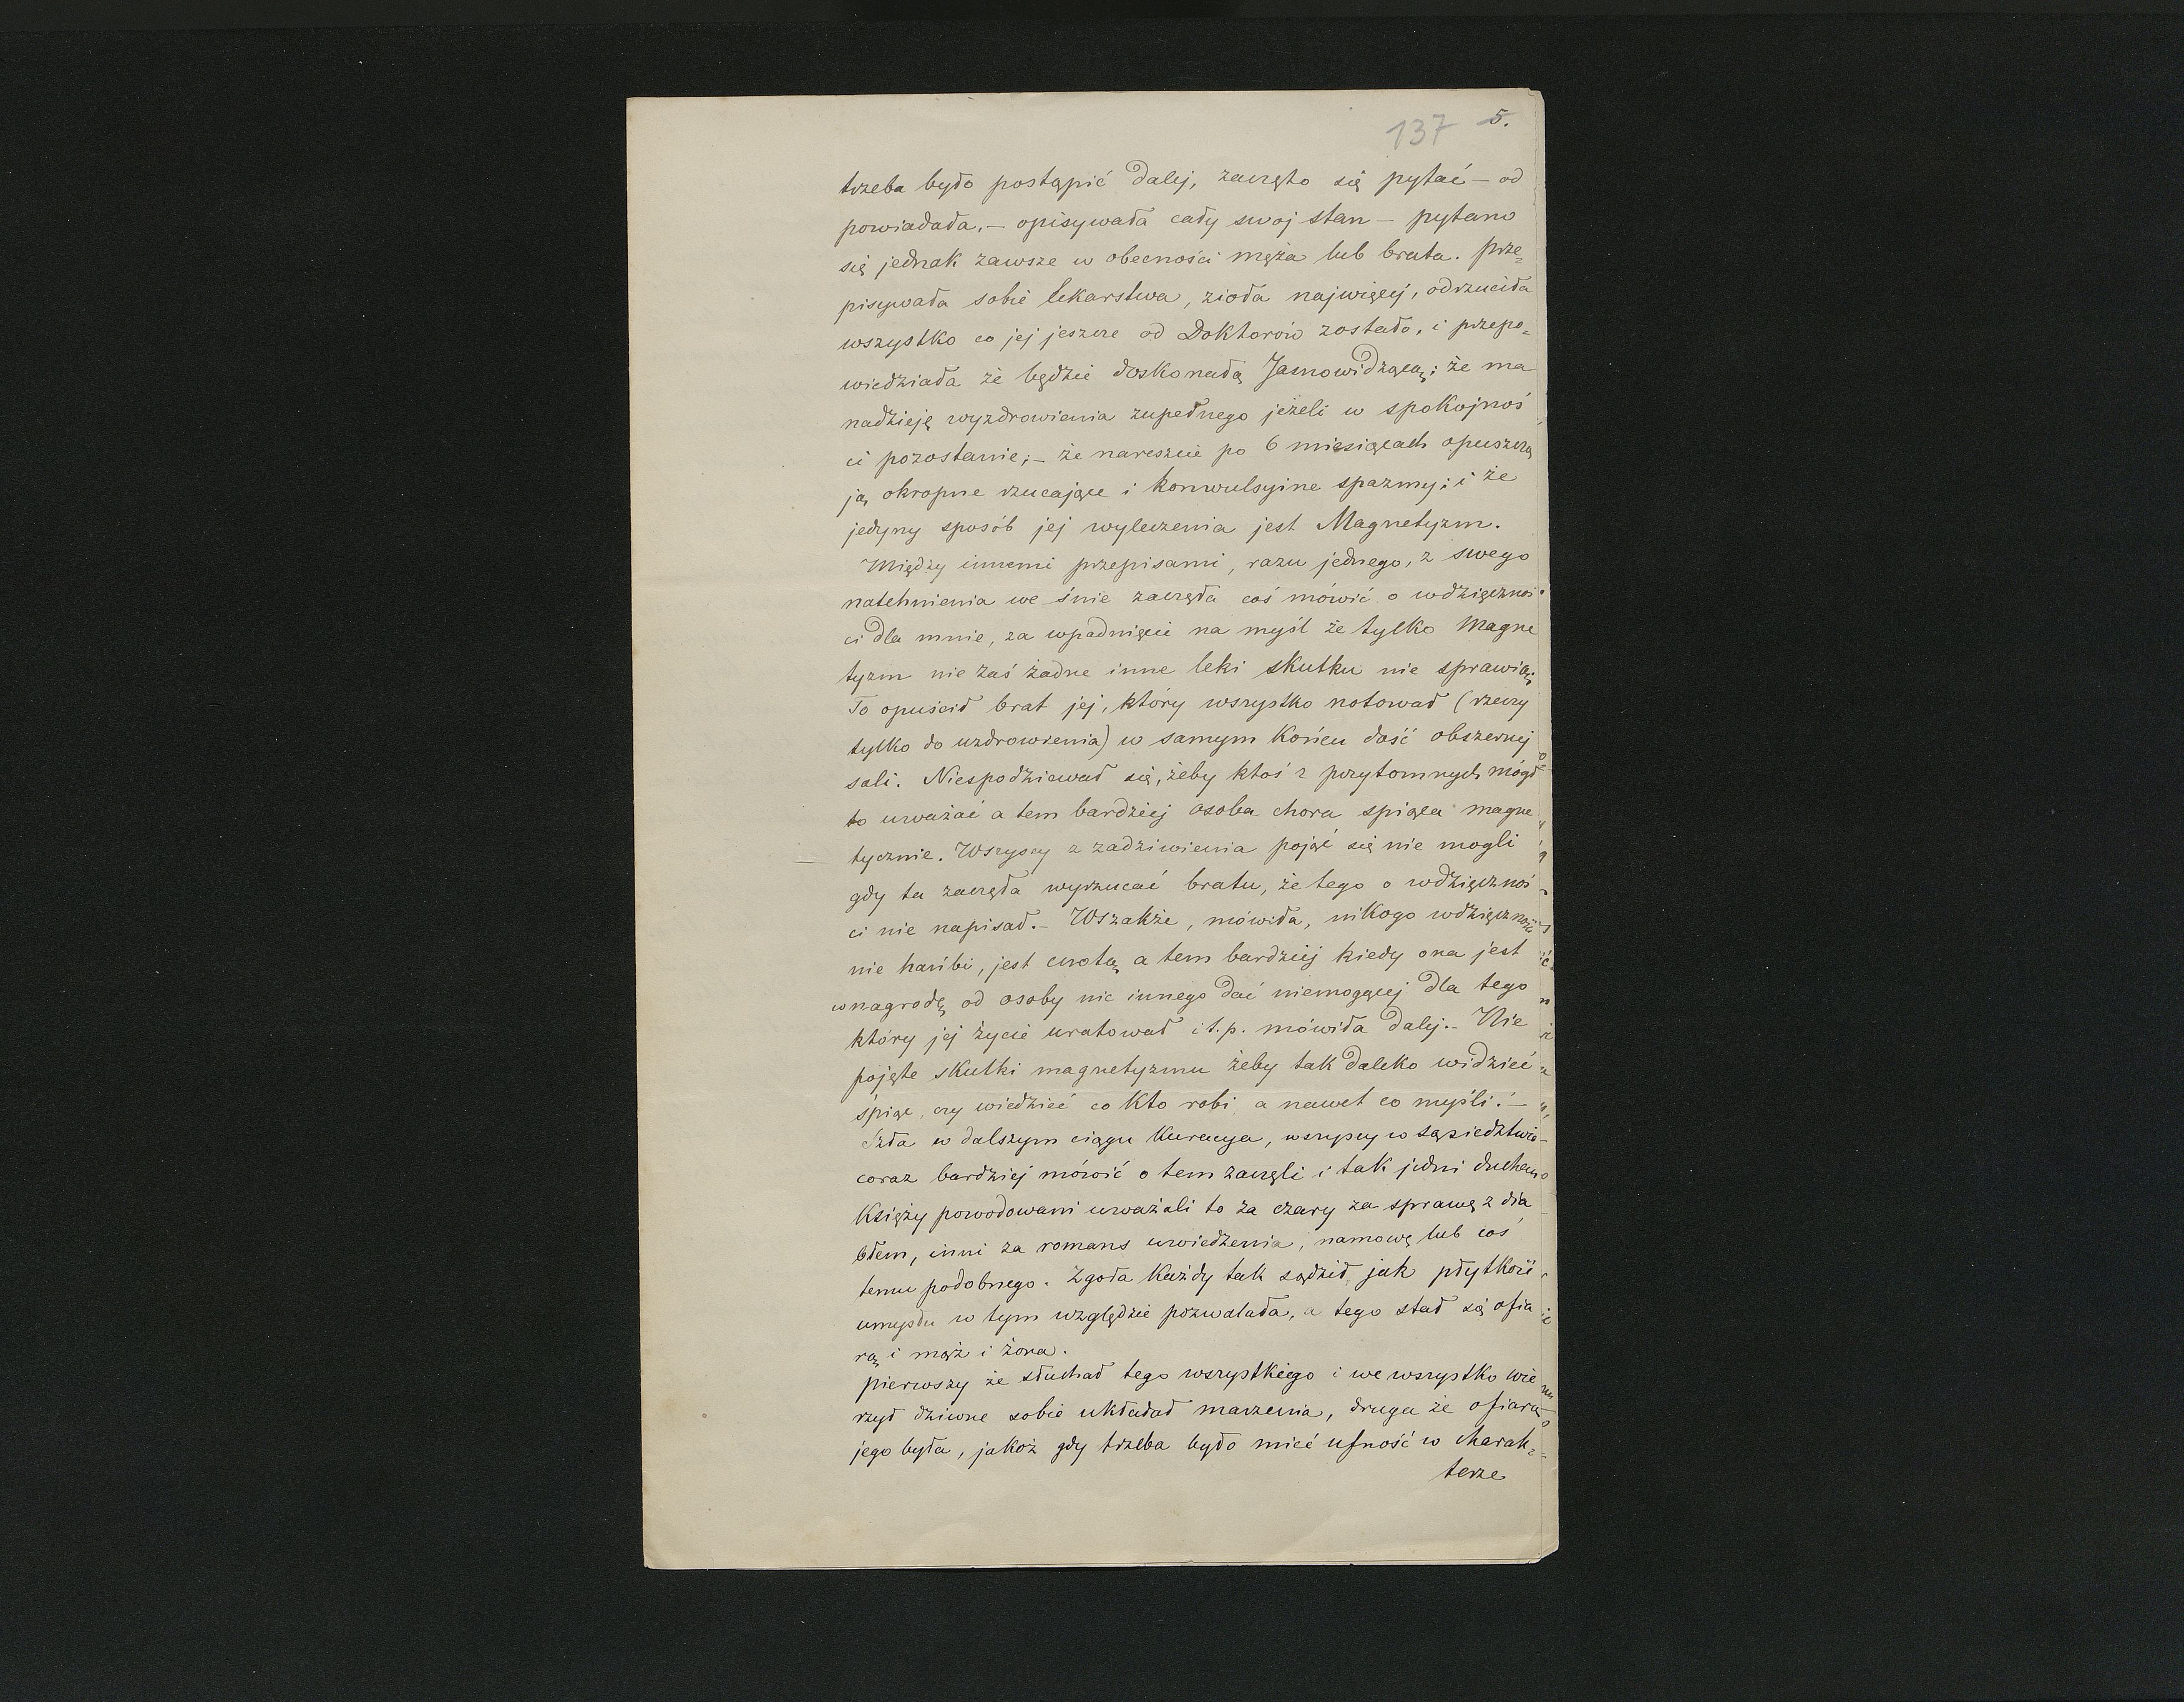 137 5.
trzeba było postąpić dalej, zaczęto się pytać – od
powiadała, – opisywała cały swoj stan – pytano
się jednak zawsze w obecności męża lub brata. prze=
pisywała sobie lekarstwa, zioła najwięcej, odrzuciła
wszystko co jej jeszcze od Doktorów zostało, i przepo=
wiedziała że będzie doskonałą Jasnowidzącą; że ma
nadzieję wyzdrowienia zupełnego jeżeli w spokojnoś
ci pozostanie; – że nareszcie po 6 miesiącach opuszczą
ją okropne rzucające i konwulsyine spazmy; i że
jedyny sposób jej wyleczenia jest Magnetyzm.
Między innemi przepisami, razu jednego, z swego
natchnienia we śnie zaczęła coś mówić o wdzięcznoś
ci dla mnie, za wpadnięcie na myśl że tylko Magne
tyzm nie zaś żadne inne leki skutku nie sprawią,
To opuścił brat jej, który wszystko notował (rzeczy
tylko do uzdrowienia) w samym końcu dość obszernej
sali. Niespodziewał się, żeby ktoś z przytomnych mógł
to uważać a tem bardziej osoba chora spiąca magne
tycznie. Wszyscy z zadziwienia pojąć się nie mogli
gdy ta zaczęła wyrzucać bratu, że tego o wdzięcznoś
ci nie napisał. – Wszakże, mówiła, nikogo wdzięczność
nie hańbi, jest cnotą, a tem bardziej kiedy ona jest
w nagrodę od osoby nic innego dać niemogącej dla tego
który jej życie uratował i t.p. mówiła dalej. – Nie
pojęte skutki magnetyzmu żeby tak daleko widzieć
śpiąc, czy wiedzieć co kto robi a nawet co myśli! –
Szła w dalszym ciągu Kuracya, wszyscy w sąsiedztwie
coraz bardziej mówić o tem zaczęli i tak jedni duchem
Księży powodowani uważali to za czary za sprawę z dia
błem, inni za romans uwiedzenia, namowę lub coś
temu podobnego. Zgoła każdy tak sądził jak płytkość
umysłu w tym względzie pozwalała, a tego stał się ofia
rą i mąż i żona.
pierwszy że słuchał tego wszystkiego i we wszystko wie
rzył dziwne sobie układał marzenia, druga że ofiarą
jego była, jakoż gdy trzeba było mieć ufność w charak=
terze